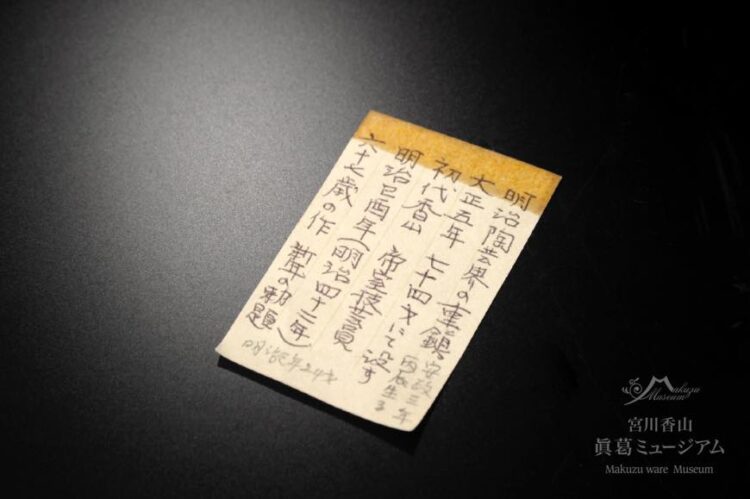 明治陶芸界の重鎮
大正五年 七十四才にて没す
初代香山 帝室技芸員
明治己酉年(明治四十二年)
六十七歳の作 新年の勅題
安政三年
丙辰生る
Makuzu
Museum
宮川香山
眞葛ミュージアム
Makuzu ware Museum